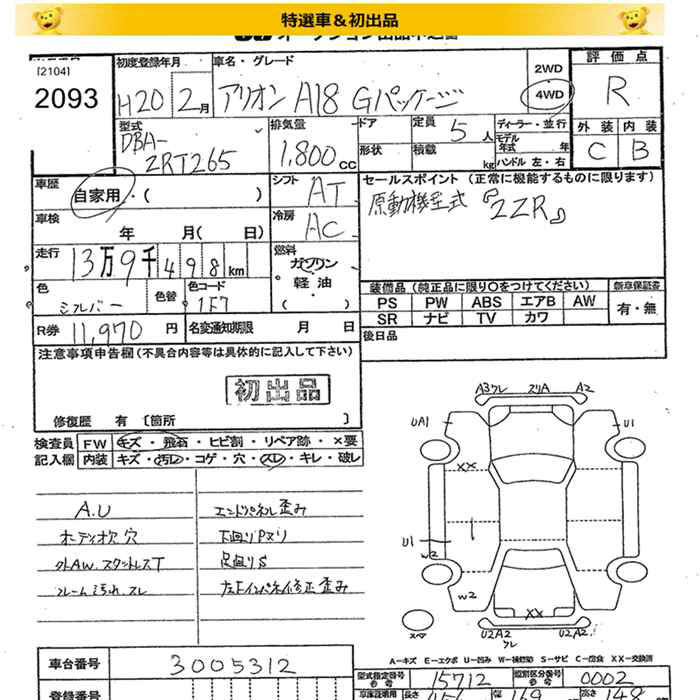 特選車＆初出品
[2104]
2093
初度登録年月
H20 2月
車名・グレード
アリオン A18 Gパッケージ
2WD
4WD
評価点
R
外装 内装
C B
型式
DBA-
ZRT265
排気量
1,800cc
ドア
定員 5人
形状
積載 kg
ディーラー・並行
モデル年式 年
ハンドル 左・右
車歴
自家用・( )
シフト
AT
車検
年 月( 日)
冷房
AC
走行
13万9千498km
燃料
ガソリン
軽油
・( )
色
シルバー
色替
色コード
1F7
R券 11,970円
名変通知期限 月 日
セールスポイント (正常に機能するものに限ります)
原動機型式『2ZR』
装備品(純正品に限り〇をつけてください)
新車保証書
PS PW ABS エアB AW
有・無
SR ナビ TV カワ
後日品
注意事項申告欄(不具合内容等は具体的に記入して下さい)
初出品
修復歴 有 [箇所 ]
検査員 FW キズ・飛石・ヒビ割・リペア跡・×要
記入欄 内装 キズ・汚レ・コゲ・穴・スレ・キレ・破レ
A.U
エンドパネル歪み
オーディオ欠 穴
下回りPヌリ
外AW. スタットレスT
足回りS
フレーム汚れ. スレ
左ドインパネ修正歪み
A3ワレ スリA A2
UA1
U1
XX
U1
W2
W2
XX
スペア
U2A2
ワレ
U2A2
A－キズ E－エクボ U－凹み W－補修跡 S－サビ C－腐食 XX－交換済
車台番号
3005312
登録番号
型式指定番号
参考
15712
類別区分番号
参考
0002
長さ
幅
高さ